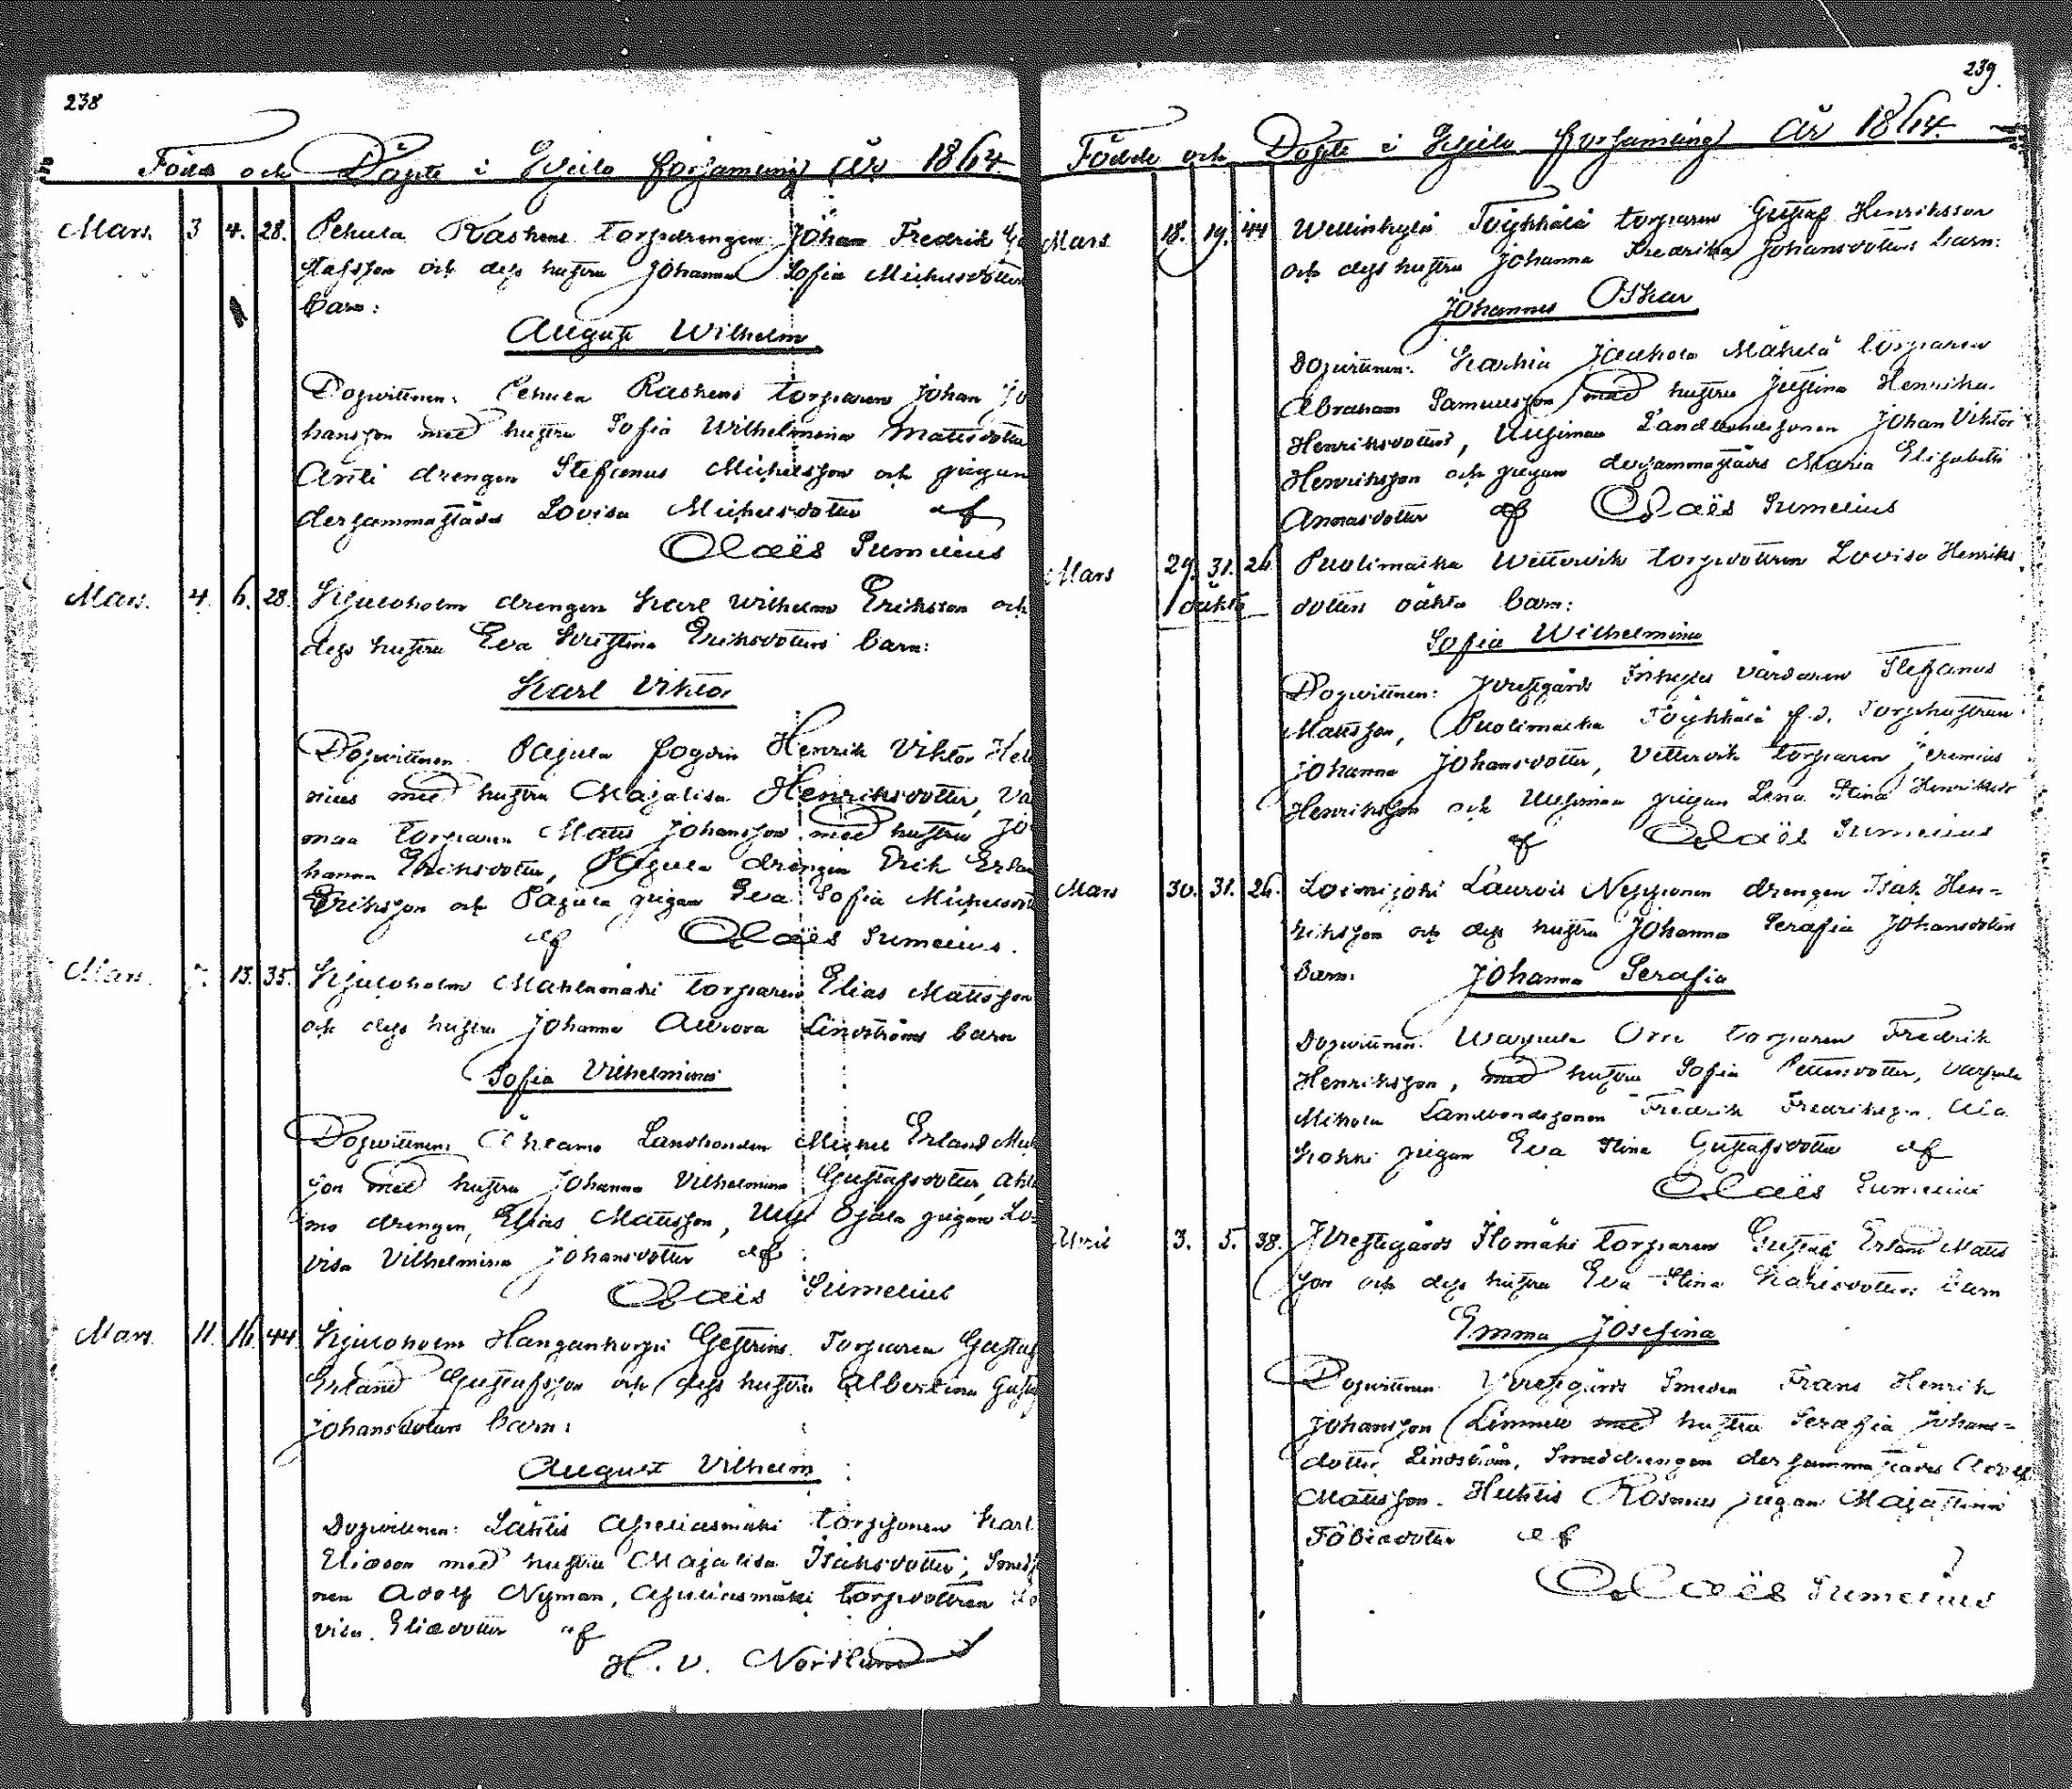 238
Födde och Döpte i Kjulo församling år 1864.
Mars. 3 4. 28. Pehula Raskens torpdrengen Johan Fredrik Gu
stafsson och dess hustru Johanna Sofia Michelsdotters
barn:
August Wilhelm
Dopvittnen: Pehula Raskens torparen Johan Jo
hansson med hustru Sofia Wilhelmina Mattsdotter
Anti drengen Stefanus Michelsson och pigan
dersammastädes Lovisa Michelsdotter af
Olaës Sumelius
Mars. 4. 6. 28. Kjuloholm drengen Karl Wilhelm Eriksson och
dess hustru Eva Kristina Eriksdotters barn:
Karl Viktor
Dopvittnen Pajula fogden Henrik Viktor Hel
nius med hustru Majalisa Henriksdotter, Va
maa torparen Matts Johansson med hustru Jo
hanna Eriksdotter, Pajula drengen Erik Erland
Eriksson och Pajula pigan Eva Sofia Michelsdott
af Olaës Sumelius.
Mars. 13. 35. Kjuloholm Mahlamäki torparen Elias Mattsson
och dess hustru Johanna Aurora Lindströms barn
Sofia Vilhelmina
Dopvittnen: Landbonden Michel Erland Mich
son med hustru Johanna Vilhelmina Gustafsdotter, Ahl
mo drengen Elias Mattsson, Uusi Ojala pigan Lo-
visa Vilhelmina Johansdotter af
Olaës Sumelius
Mars. 11. 16. 44. Kjuloholm Hangankorpi Torparen Gustaf
Erland Gustafsson och dess hustru Albertina Gusta
Johansdotters barn:
August Vilhelm
Dopvittnen: Lähtis torpsonen Karl
Eliasson med hustru Majalisa Isaksdotter; Smeds
nen Adolf Nyman, torpdottren Lo
visa Eliedotter af
H. V. Nordlund
239.
Födde och Döpte i Kjulo församling år 1864.
Mars 18. 19. 44 Wellinkylä Töyhkälä torparen Gustaf Henriksson
och dess hustru Johanna Fredrika Johansdotters barn:
Johannes Oskar
Dopvittnen: Karhia Jaakola Mäkelä torparen
Abraham Samuelsson med hustru Justina Henrika
Henriksdotters, Uusimaa Landbondesonen Johan Viktor
Henriksson och pigan dersammastädes Maria Elisabeth
Annasdotter af Olaës Sumelius
Mars 29. 31. 26. Puolimatka Wettervik torpdottren Lovisa Henriks
oäkta dotters oäkta barn:
Sofia Wilhelmina
Dopvittnen: Yrestgårds Inhyses vårdaren Stefanus
Mattsson, Puolimatka Töyhkälä f.d. Torphustrun
Johanna Johansdotter, Vettervik torparen Jeremias
Henriksson och Uusimaa pigan Lena Stina Henriksdr
af Olaës Sumelius
Mars 30. 31. 26. Loimijoki Laurois Nepponen drengen Isak Hen-
riksson och dess hustru Johanna Serafia Johansdotters
barn: Johanna Serafia
Dopvittnen: Orri torparen Fredrik
Henriksson, med hustru Sofia Pettersdotter,
Mikola Landbondesonen Fredrik Fredriksson,
pigan Eva Stina Gustafsdotter af
Olaës Sumelius
April 3. 5. 38. Yrestgårds Ilomäki torparen Gustaf Erland Matts
son och dess hustru Eva Stina Karlsdotters barn
Emma Josefina
Dopvittnen Yrestgårds Smeden Frans Henrik
Johansson Limnell med hustru Serafia Johans-
dotter Lindström, Smeddrengen dersammastädes Adolf
Mattsson. Huhtis Rosnus pigan Majastina
Tobiedotter af
Olaës Sumelius